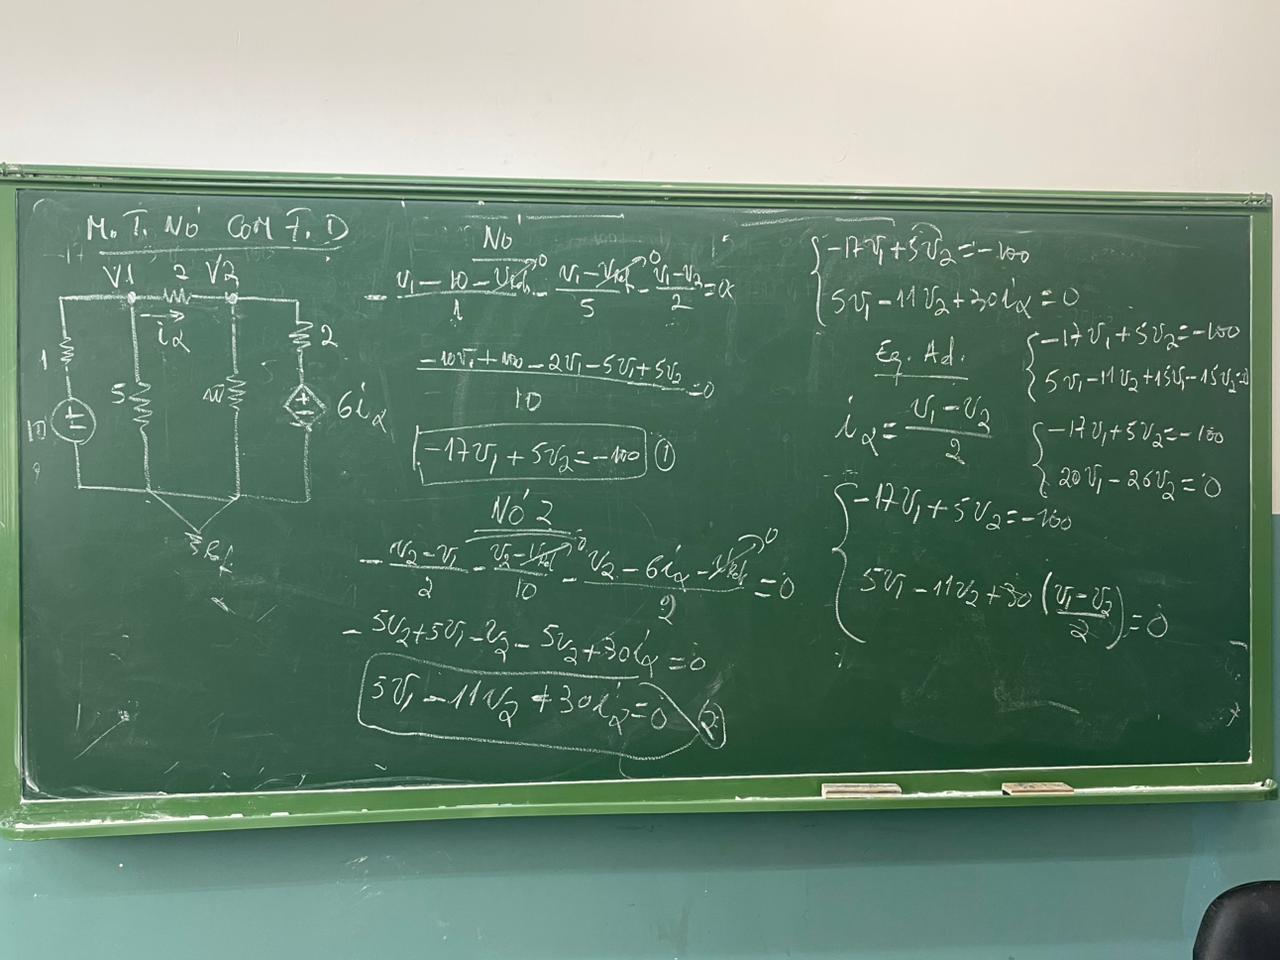 M. T. NÓ COM F. D
V1 2 V2
iα
1
5
10
2
10
6iα
Ref
NÓ
- (v1 - 10 - vRef→0)/1 - (v1 - vRef→0)/5 - (v1 - v2)/2 = 0
(-10v1 + 100 - 2v1 - 5v1 + 5v2)/10 = 0
-17v1 + 5v2 = -100 ①
NÓ 2
- (v2 - v1)/2 - (v2 - vRef→0)/10 - (v2 - 6iα - vRef→0)/2 = 0
- 5v2 + 5v1 - v2 - 5v2 + 30iα = 0
5v1 - 11v2 + 30iα = 0 ②
{-17v1 + 5v2 = -100
5v1 - 11v2 + 30iα = 0
Eq. Ad.
iα = (v1 - v2)/2
{-17v1 + 5v2 = -100
5v1 - 11v2 + 30((v1 - v2)/2) = 0
{-17v1 + 5v2 = -100
5v1 - 11v2 + 15v1 - 15v2 = 0
{-17v1 + 5v2 = -100
20v1 - 26v2 = 0